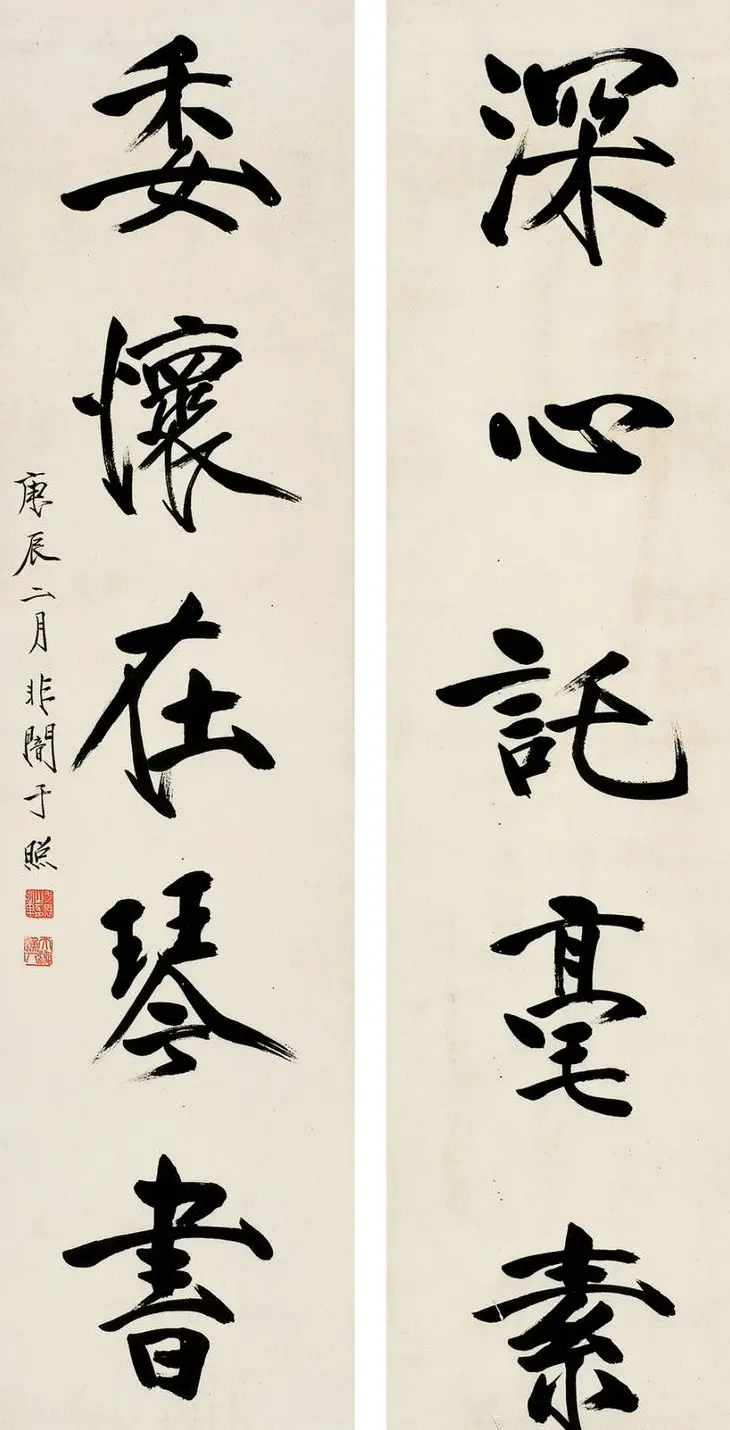 深心託毫素
委懷在琴書
庚辰二月非闇于照